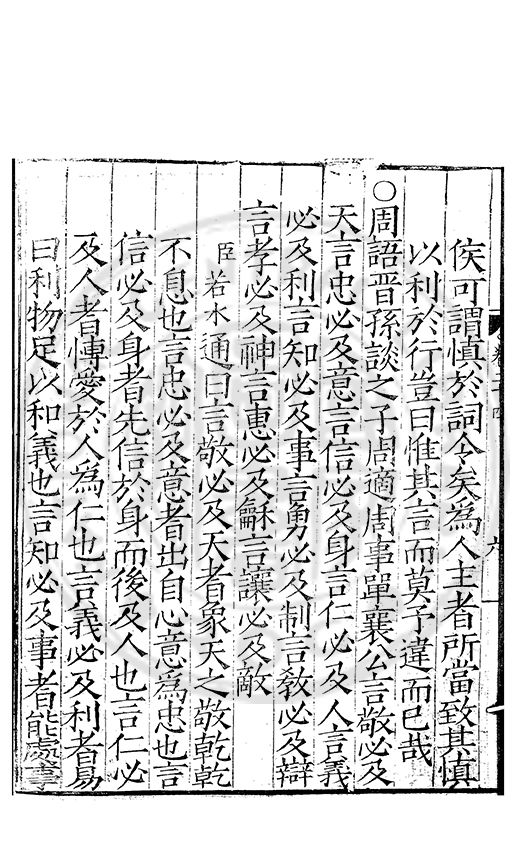 侯可謂慎於詞令矣為人主者所當致其慎
以利於行豈曰惟其言而莫予違而已哉
○周語晉孫談之子周適周事單襄公言敬必及
天言忠必及意言信必及身言仁必及人言義
必及利言知必及事言勇必及制言教必及辯
言孝必及神言惠必及龢言讓必及敵
臣若水通曰言敬必及天者象天之敬乾乾
不息也言忠必及意者出自心意為忠也言
信必及身者先信於身而後及人也言仁必
及人者博愛於人為仁也言義必及利者易
曰利物足以和義也言知必及事者能處事